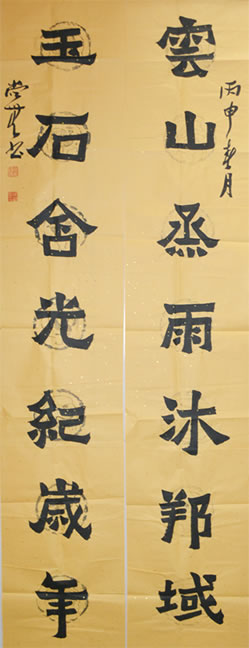 丙申春月
雲山烝雨沐邦域
玉石含光紀歲年